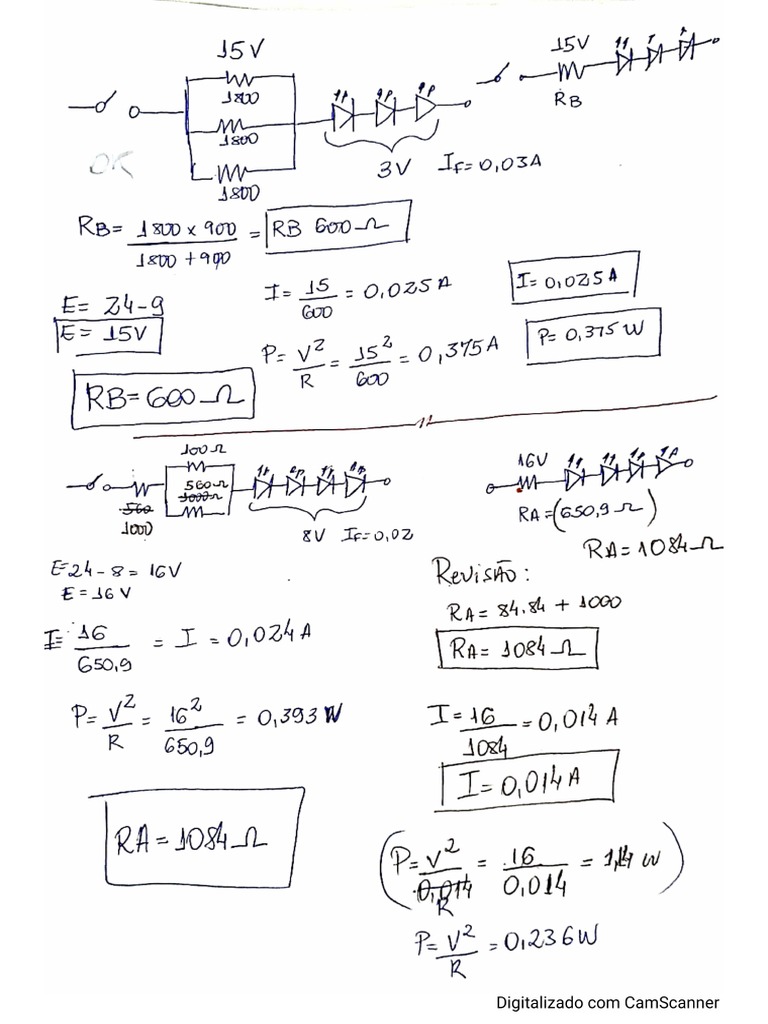 15V
1800
1800
1800
3V IF=0,03A
15V
RB
OK
RB= 1800 x 900 / 1800 + 900 = RB 600Ω
E= 24-9
E= 15V
I= 15/600 = 0,025A
I= 0,025A
P= V²/R = 15²/600 = 0,375A
P= 0,375W
RB=600Ω
100Ω
560Ω
1000Ω
560
1000
8V IF=0,02
16V
RA=(650,9Ω)
RA=1084Ω
E=24-8=16V
E=16V
I= 16/650,9 = I = 0,024A
P= V²/R = 16²/650,9 = 0,393W
RA=1084Ω
REVISÃO:
RA= 84.84 + 1000
RA= 1084Ω
I=16/1084=0,014A
I=0,014A
(P=V²/0,014 R = 16/0,014 = 1,14 W)
P= V²/R =0,236W
Digitalizado com CamScanner